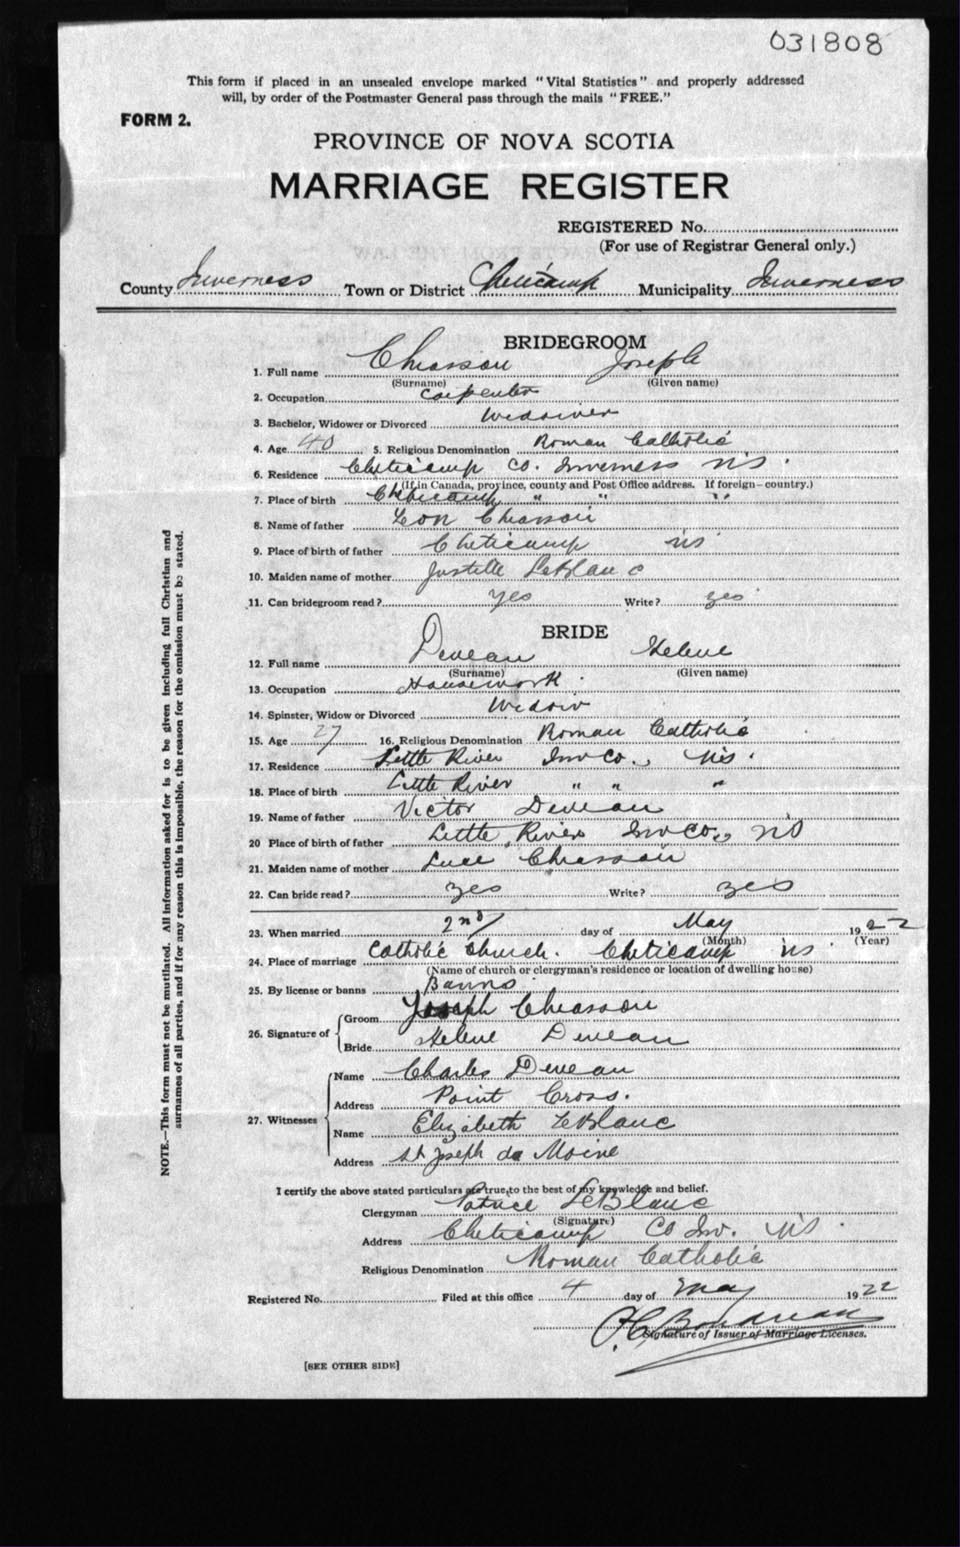 031808
This form if placed in an unsealed envelope marked "Vital Statistics" and properly addressed
will, by order of the Postmaster General pass through the mails "FREE."
FORM 2.
PROVINCE OF NOVA SCOTIA
MARRIAGE REGISTER
REGISTERED No.
(For use of Registrar General only.)
County Inverness Town or District Cheticamp Municipality Inverness
BRIDEGROOM
1. Full name Chiasson Joseph
(Surname) (Given name)
2. Occupation Carpenter
3. Bachelor, Widower or Divorced Widower
4. Age 40 5. Religious Denomination Roman Catholic
6. Residence Cheticamp Co. Inverness NS.
(If in Canada, province, county and Post Office address. If foreign—country.)
7. Place of birth Cheticamp " " "
8. Name of father Leon Chiasson
9. Place of birth of father Cheticamp NS
10. Maiden name of mother Justille LeBlanc
11. Can bridegroom read? yes Write? yes
BRIDE
12. Full name Deveau Helene
(Surname) (Given name)
13. Occupation Housework.
14. Spinster, Widow or Divorced Widow
15. Age 27 16. Religious Denomination Roman Catholic
17. Residence Little River Inv Co., NS.
18. Place of birth Little River " " "
19. Name of father Victor Deveau
20 Place of birth of father Little River Inv Co., NS
21. Maiden name of mother Luce Chiasson
22. Can bride read? yes Write? yes
23. When married 2nd day of May 1922
(Month) (Year)
24. Place of marriage Catholic Church. Cheticamp NS.
(Name of church or clergyman's residence or location of dwelling house)
25. By license or banns Banns
26. Signature of Groom Joseph Chiasson
Bride Helene Deveau
27. Witnesses Name Charles Deveau
Address Point Cross.
Name Elizabeth LeBlanc
Address St Joseph du Moine
I certify the above stated particulars are true to the best of my knowledge and belief.
Clergyman Patrice LeBlanc
(Signature)
Address Cheticamp Co Inv. NS.
Religious Denomination Roman Catholic
Registered No. Filed at this office 4 day of May 1922
Boudreau
Signature of Issuer of Marriage Licenses.
[SEE OTHER SIDE]
NOTE.—This form must not be mutilated. All information asked for is to be given including full Christian and
surnames of all parties, and if for any reason this is impossible, the reason for the omission must be stated.